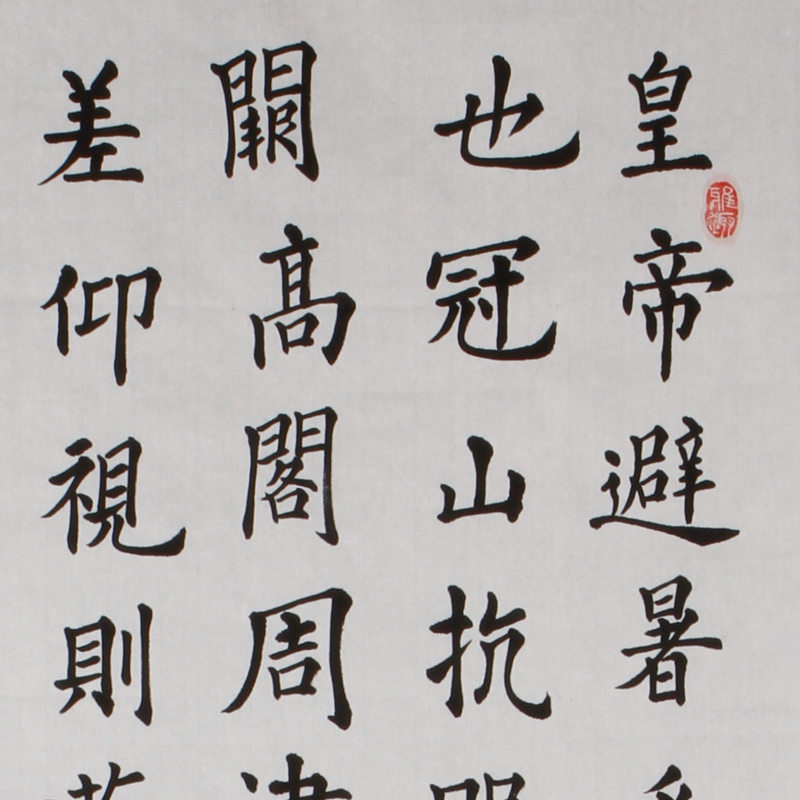 皇帝避暑
也冠山抗
闕高閣周
差仰視則